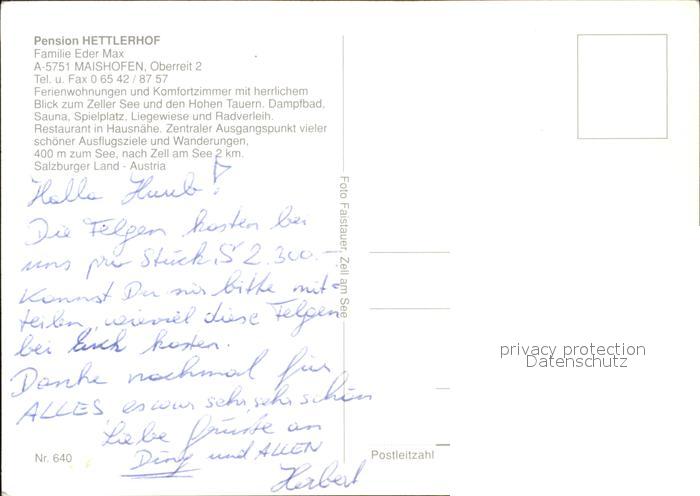 Pension HETTLERHOF
Familie Eder Max
A-5751 MAISHOFEN, Oberreit 2
Tel. u. Fax 0 65 42 / 87 57
Ferienwohnungen und Komfortzimmer mit herrlichem
Blick zum Zeller See und den Hohen Tauern. Dampfbad,
Sauna, Spielplatz, Liegewiese und Radverleih.
Restaurant in Hausnähe. Zentraler Ausgangspunkt vieler
schöner Ausflugsziele und Wanderungen,
400 m zum See, nach Zell am See 2 km.
Salzburger Land - Austria
Hallo Huub!
Die Felgen kosten bei
uns pro Stück S 2.300.-
Kannst Du mir bitte mit-
teilen, wieviel diese Felgen
bei Euch kosten.
Danke nochmal für
ALLES es war sehr, sehr schön
Liebe Grüße an
Diny und ALLEN
Herbert
Nr. 640
Foto Faistauer, Zell am See
Postleitzahl
privacy protection
Datenschutz